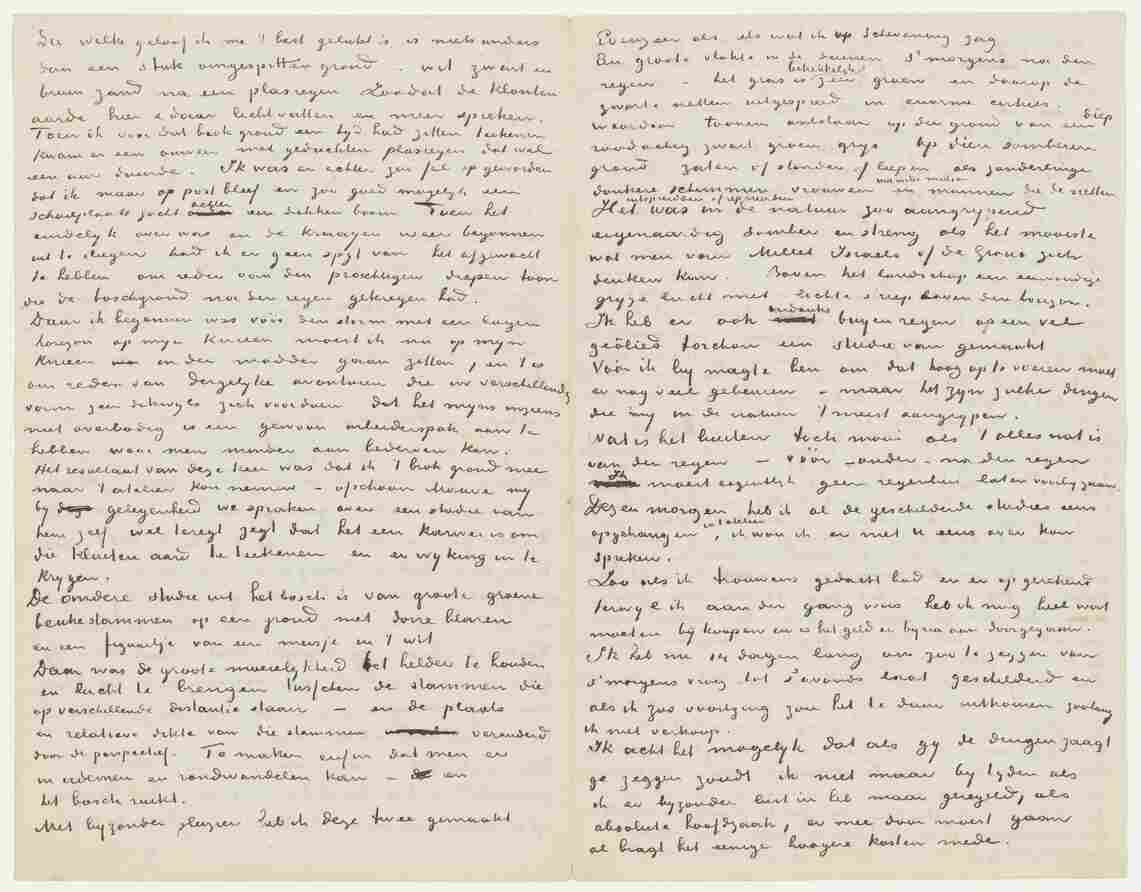 Die welke geloof ik me 't best gelukt is is niets anders
dan een stuk omgespitten grond – wit zwart en
bruin zand na een plasregen Zoodat de klonten
aarde hier & daar licht vatten en meer spreken.
Toen ik voor dat brok grond een tijd had zitten teekenen
kwam er een onweer met geduchten plasregen dat wel
een uur duurde. Ik was er echter zoo fel op geworden
dat ik maar op post bleef en zoo goed mogelyk een
schuilplaats zocht achter een dikken boom Toen het
eindelyk over was en de kraaijen weer begonnen
uit te vliegen had ik er geen spyt van het afgewacht
te hebben om reden van den prachtigen diepen toon
die de boschgrond na den regen gekregen had.
Daar ik begonnen was vóór den storm met een lagen
horizon op myn knieen moest ik nu op myn
knieen in den modder gaan zitten, en 't is
om reden van dergelyke avonturen die in verschillende
vorm zeer dikwyls zich voordoen dat het myns inziens
niet overbodig is een gewoon arbeiderspak aan te
hebben waar men minder aan bederven kan.
Het resultaat van deze keer was dat ik 't brok grond mee
naar 't atelier kon nemen – ofschoon Mauve my
by gelegenheid we spraken over een studie van
hem zelf wel teregt zegt dat het een karwei is om
die kluiten aard te teekenen en er wyking in te
krygen.
De andere studie uit het bosch is van groote groene
beukestammen op een grond met dorre blaren
en een figuurtje van een meisje in 't wit
Daar was de groote moeielykheid het helder te houden
en lucht te brengen tusschen de stammen die
op verschillende distantie staan – en de plaats
en relatieve dikte van die stammen veranderd
door de perspectief. Te maken enfin dat men er
in ademen en rondwandelen kan – en
het bosch ruikt.
Met byzonder pleizier heb ik deze twee gemaakt
Evenzeer als iets wat ik op Schevening zag
Een groote vlakte in de duinen s'morgens na den
regen – het gras is betrekkelyk zeer groen en daarop de
zwarte netten uitgespreid in enorme cirkels.
waardoor toonen ontstaan op den grond van een diep
roodachtig zwart groen grys Op dien somberen
grond zaten of stonden of liepen als zonderlinge
donkere schimmen vrouwen en mannen die de netten
uitspreidden of repareerden
Het was in de natuur zoo aangrypend
eigenaardig somber en streng als het mooiste
wat men van Millet Israels of de Groux zich
denken kan. Boven het landschap een eenvoudige
gryze lucht met lichte streep boven den horizon.
Ik heb er ook ondanks buyen regen op een vel
geölied torchon een studie van gemaakt
Vóór ik by magte ben om dat hoog op te voeren moet
er nog veel gebeuren – maar het zyn zulke dingen
die my in de natuur 't meest aangrypen.
Wat is het buiten toch mooi als 't alles nat is
van den regen – vóór – onder – na den regen
Ik moest eigentlyk geen regenbui laten voorbygaan.
Dezen morgen heb ik al de geschilderde studies eens
opgehangen in 't atelier, ik wou ik er met U eens over kon
spreken.
Zoo als ik trouwens gedacht had en er op gerekend
terwyl ik aan den gang was heb ik nog heel wat
moeten bij koopen en is het geld er byna aan doorgegaan.
Ik heb nu 14 dagen lang om zoo te zeggen van
s'morgens vroeg tot s'avonds laat geschilderd en
als ik zoo voortging zou het te duur uitkomen zoolang
ik niet verkoop.
Ik acht het mogelyk dat als gy de dingen zaagt
ge zeggen zoudt ik niet maar by tyden als
ik er byzonder lust in heb maar geregeld, als
absolute hoofdzaak, er mee door moest gaan
al bragt het eenige hoogere kosten mede.